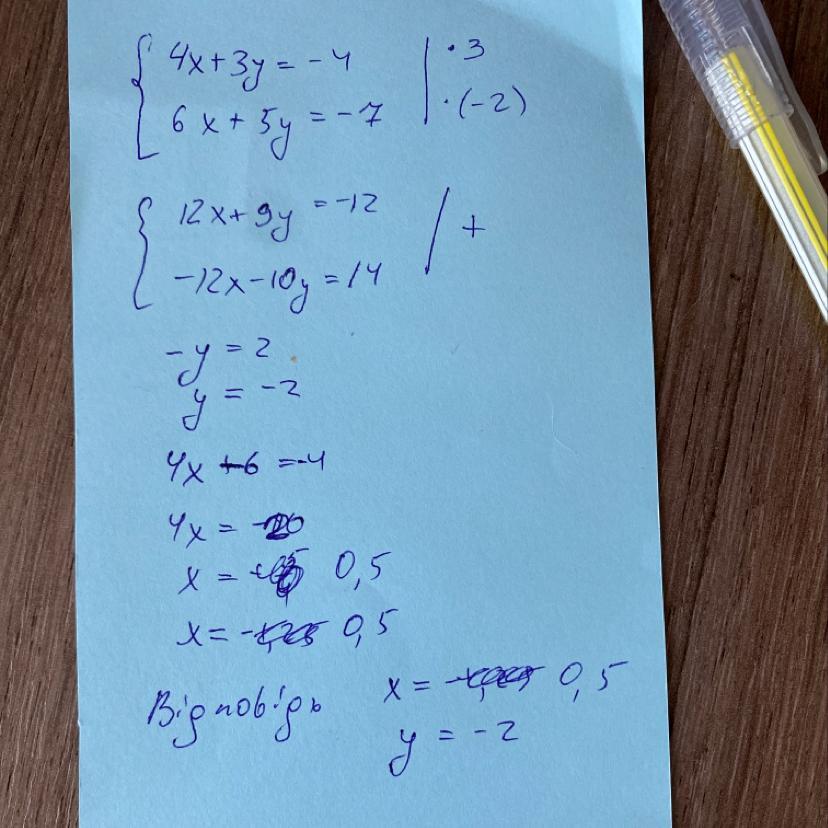 4x+3y=-4 | ·3
6x+5y=-7 | ·(-2)
12x+9y=-12 | +
-12x-10y=14
-y=2
y=-2
4x-6=-4
4x=
x= 0,5
x= 0,5
Відповідь x= 0,5
y=-2